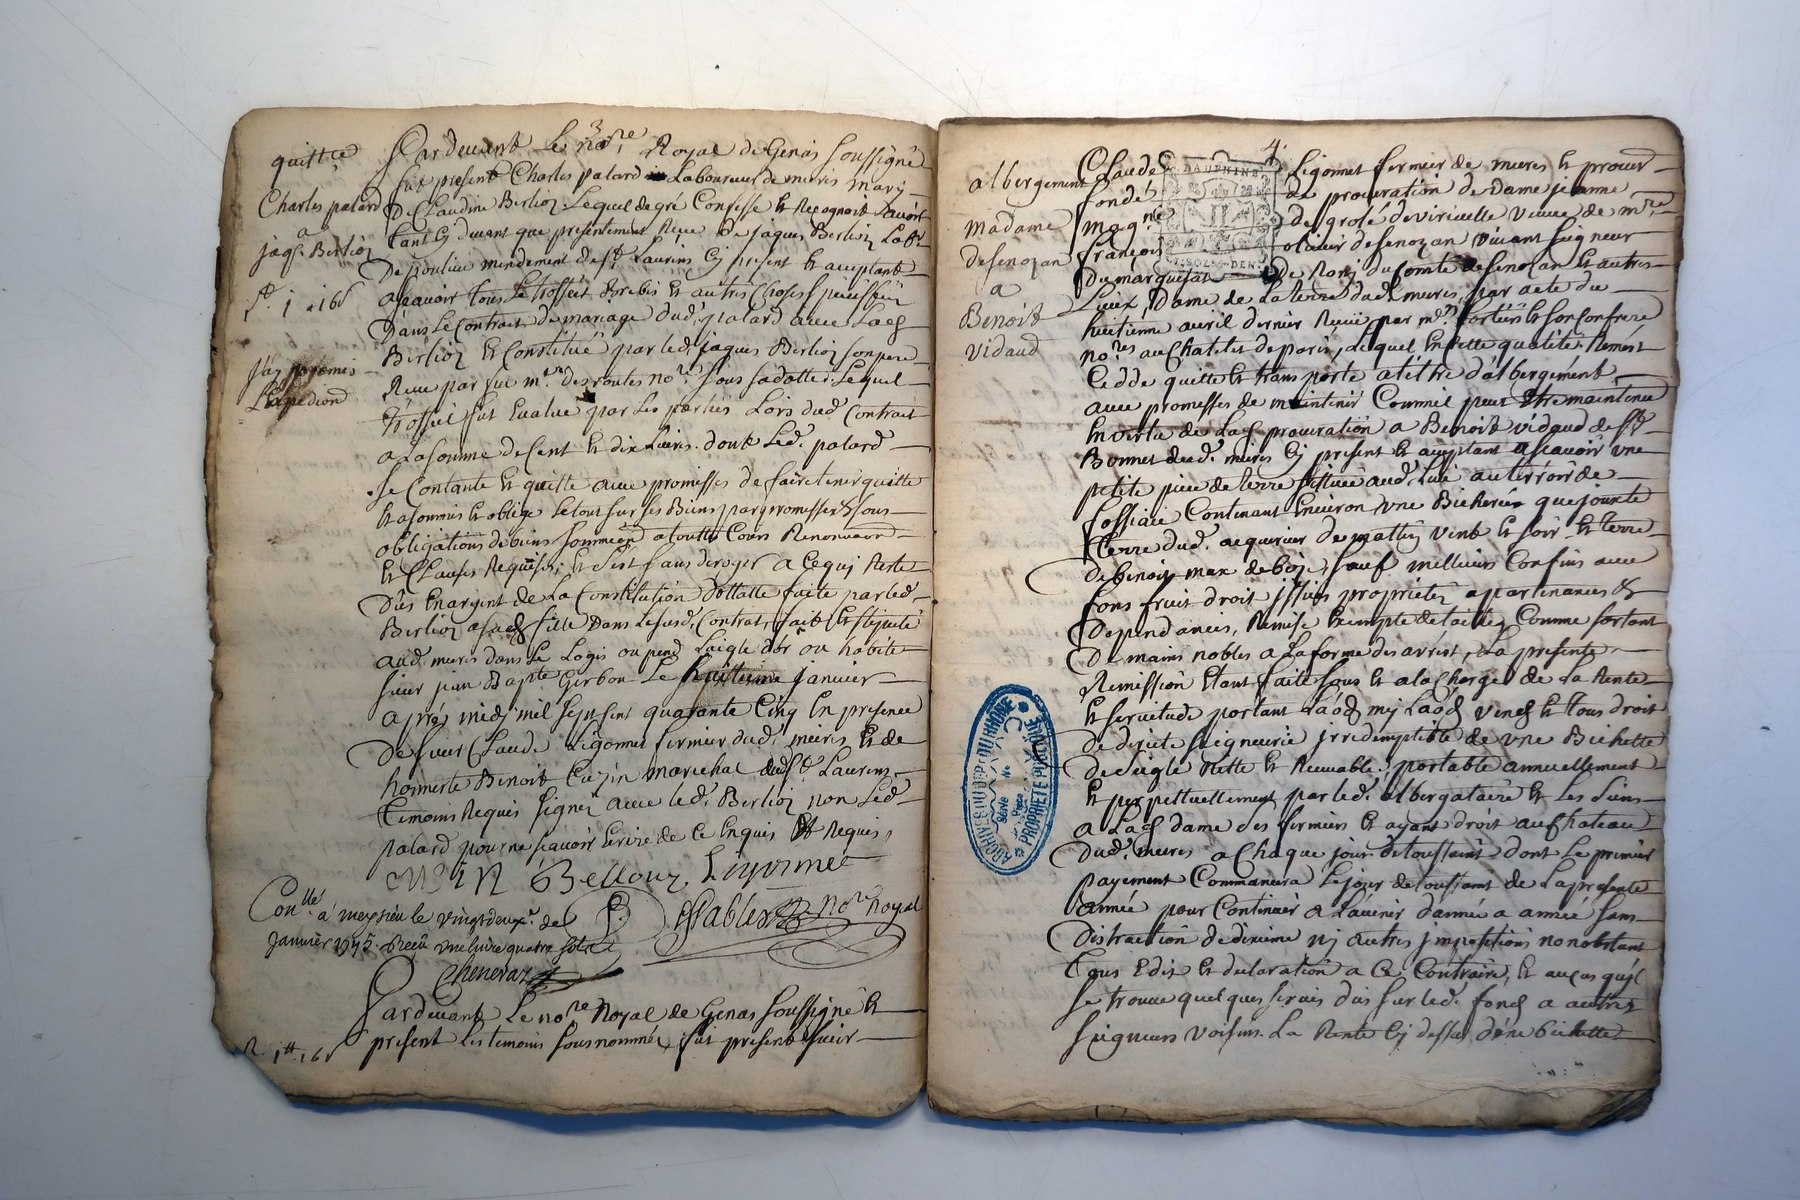 3
quittce
Charles patard
a
jaqs. Berlioz
Pardevant Le nore Royal de Genas soussigné
fut present Charles patard Laboureur de meiris mary
De Claudine Berlioz Lequel de gré Confesse et Recognoit Lavoir
tant cy devant que presentement Receu De jaques Berlioz Labr
De poulieu mendement de st. Laurens cy present et acceptant
asçavoir tous Le trossel Brebis et autres Choses speciffiées
Dans Le Contract de mariage dud. patard avec Lad.
Berlioz et Constitué par led. jaques Berlioz son pere
Receu par feu me desroutes nore. sous sa datte, Lequel
trossel fut Evalué par Les parties Lors dud. Contract
a La somme de Cent et dix Livres dont Led. patard
se Contante et quitte avec promesses de faire tenir quitte
et a soumis et obligé Le tout sur ses Biens par promesses & sous
obligations de biens soumission a toutte Cours Renonceaon
et Clauses Requises, et C'est sans deroger a Ce qui Reste
Dûs En argent de La Constitution Dottalle faite par led.
Berlioz a sad. fille Dans Le susd. Contrat, fait et stipulé
aud. meiris dans Le Logis ou pend L'aigle d'or ou habite
sieur jean Bapte Gerbou Le huitieme janvier
aprés midy mil sept cent quarante Cinq En presence
De sieur Claude Ligonnet fermier dud. meiris et de
honnerte Benoit Cuzin marechal dud. st. Laurens
temoins Requis signez avec led. Berlioz non Led.
patard pour ne sçavoir Ecrire de Ce Enquis et Requis,
Ligonnet
nore Royal
Conllé a meyzieu le vingt deuxe. de
janvier 1745. Reçu une livre quatre sols
Pardevant Le nore Royal de Genas soussigné et
present Les temoins sous nommés, fut present sieur
4.
albergement
Madame
de senozan
a
Benoit
vidaud
DAUPHINE
Claude Ligonnet fermier de meiris et procur
fondé de procuration de Dame jeanne
magne de grolé de viriville veuve de mre
françois olivier de senozan vivant seigneur
Du marquisat De Rony du Comté de senozan et autres
Lieux, Dame de La terre dud. meiris, par acte du
huitieme avril dernier Receu par me. fortier et son Confrere
nores au Chatelet de paris, Lequel En cette qualité Remêst
Cedde quitte et transporte a titre d'albergement
avec promesses de maintenir Comme il peut Etre maintenu
En vertu de Lad. procuration a Benoit vidaud de st.
Bonnet dud. meiris cy present et acceptant asçavoir une
petite piece de terre sistuée aud. Lieu au terroir de
fossiare Contenant Environ une Bicherée que jouxte
terre dud. acquereur de mattin vent et soir et terre
de benoit max de bize, sauf meilleurs Confins avec
fons fruit droit issues proprietés apartenances &
Dependances, Remise Exempte de tailles Comme sortant
De mains nobles a La forme des arrêst, La presente
Remission Etant faite sous et a la Charge de La Rente
et servitude portant Laod my Laod vend et tous droit
de directe seigneurie irredemptible de une Bichette
de seigle Nette et Recevable, portable annuellement
et perpettuellement par led. albergataire et Les siens
a Lad. dame ses fermiers et ayant droit au Chateau
Dud. meiris a Chaque jour de toussaint dont Le premier
payement Commancera Le jour de toussaint de La presente
année pour Continuer a L'avenir d'année a année sans
Distraction de dixieme ny autres impositions nonobstant
Tous Edit et declaration a Ce Contraire, et au cas qu'il
se trouve quelques servis dus sur led. fond a autres
seigneurs voisins La Rente cy dessus d'une bichette
ARCHIVES DU DEP. DU RHONE
PROPRIETE PUBLIQUE